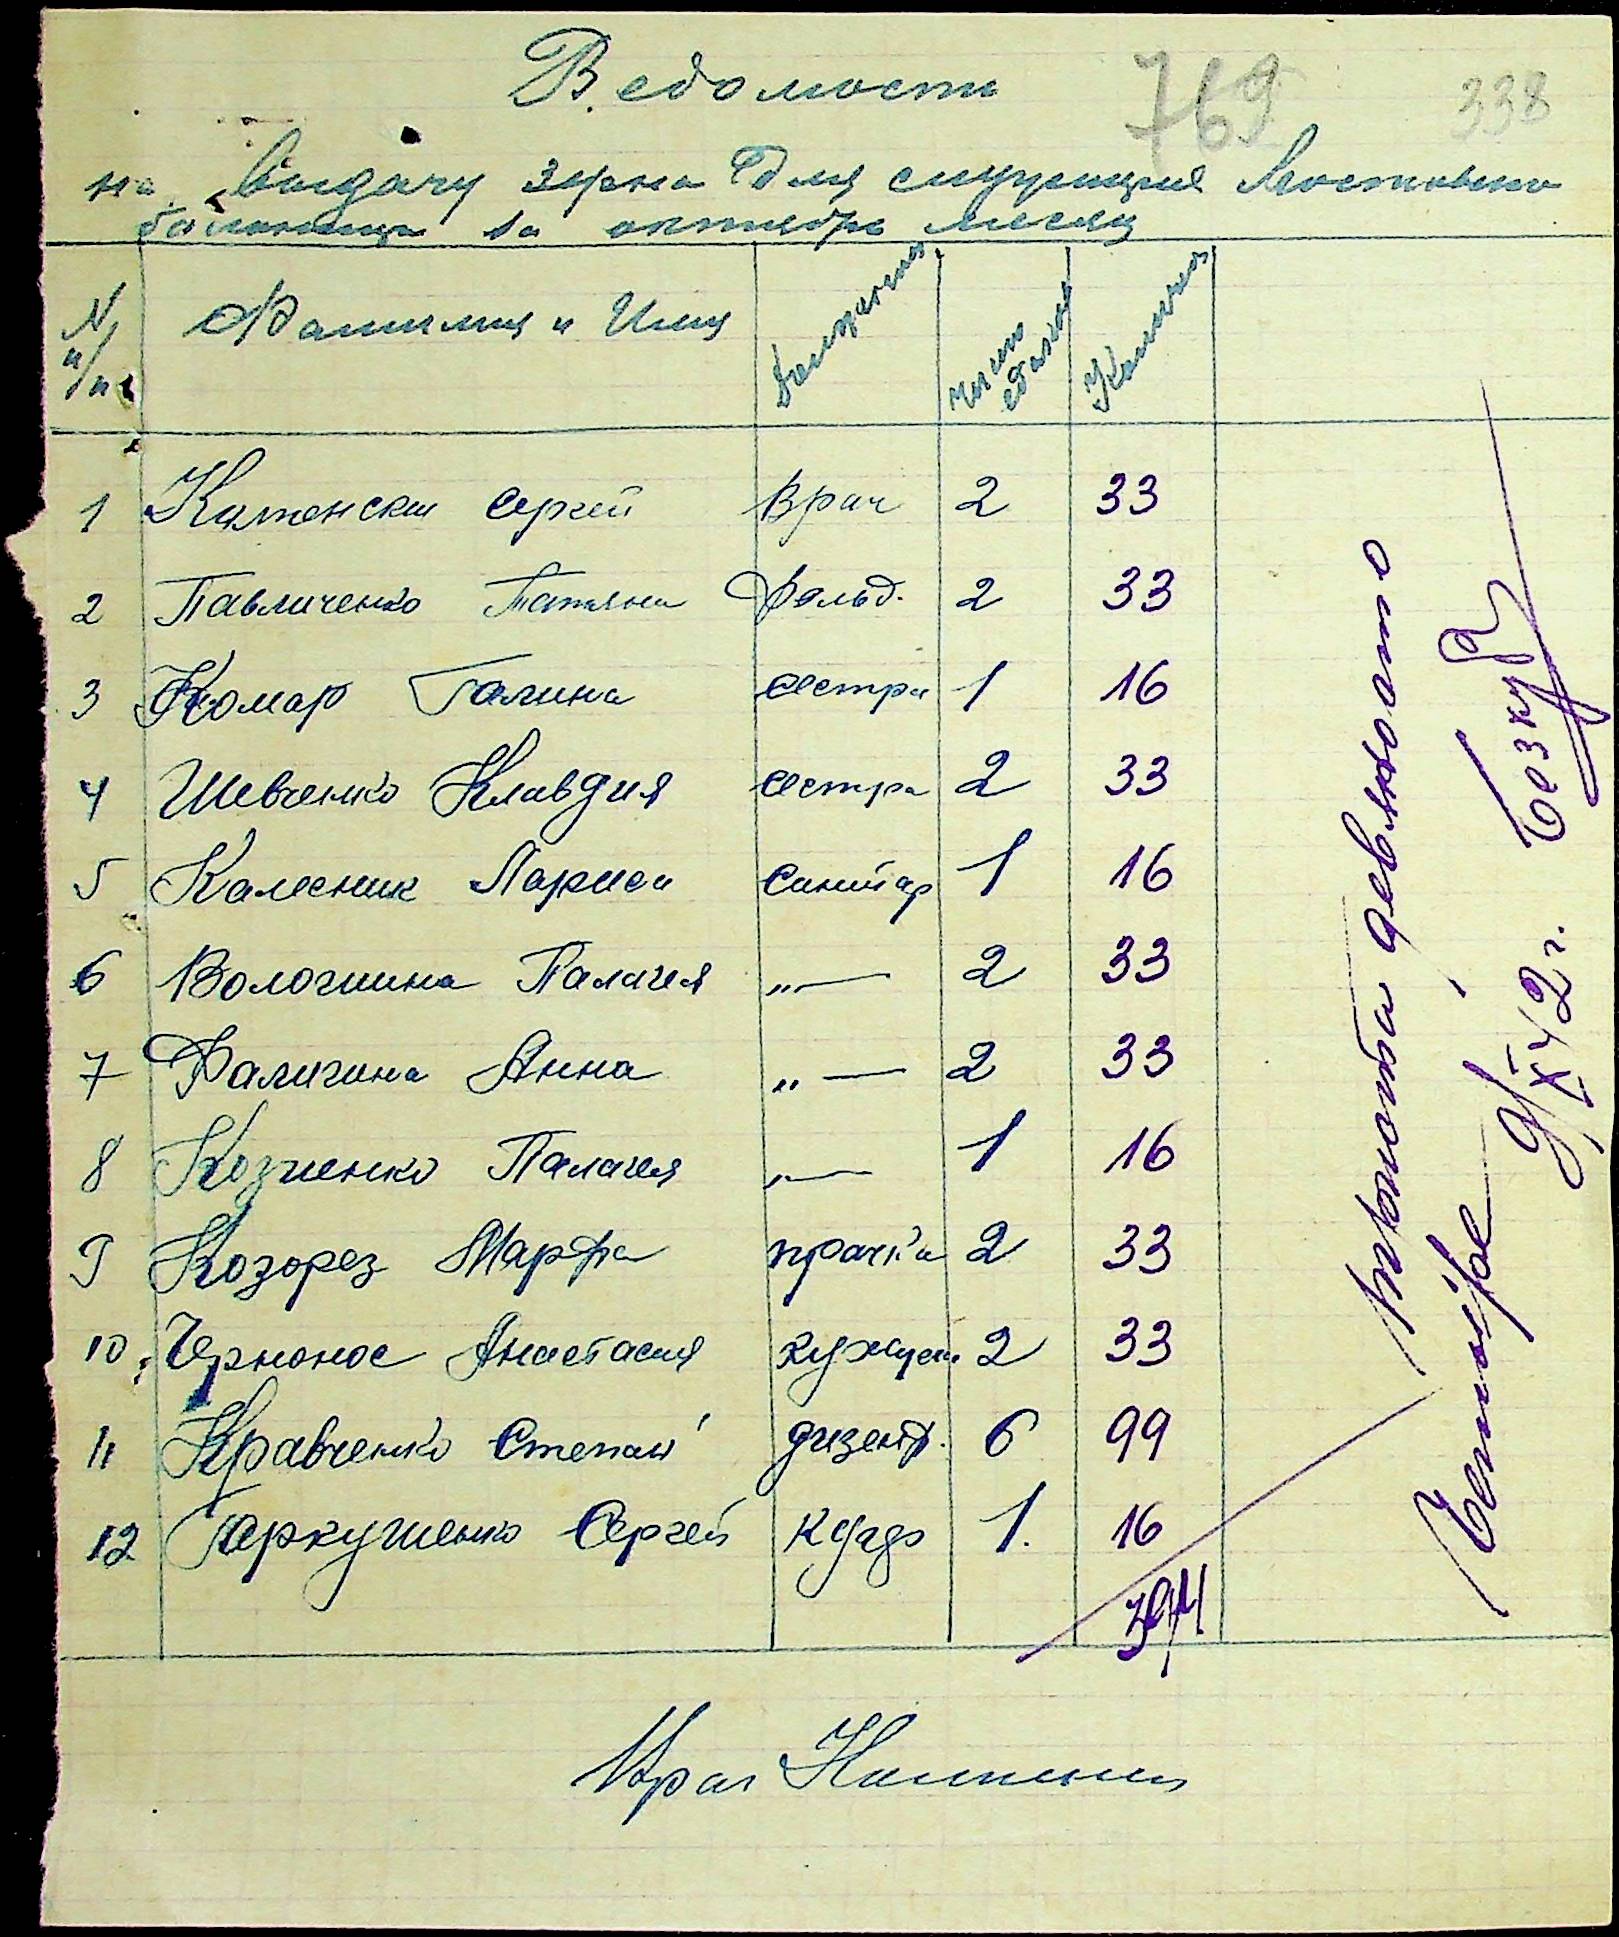 Ведомость
769
338
на выдачу зерна для служащих Мостовской
больницы за октябрь месяц
N п/п
Фамилия и Имя
Должность
Число едоков
Количес
1 Каменский Сергей врач 2 33
2 Павличенко Татьяна Фельд. 2 33
3 Комар Галина сестра 1 16
4 Шевченко Клавдия сестра 2 33
5 Калесник Лариса санитар 1 16
6 Вологнина Палагея „— 2 33
7 Фалигина Анна „— 2 33
8 Козиенко Палагея „— 1 16
9 Козорез Марфа прачка 2 33
10 Чернонос Анастасия кухарк 2 33
11 Кравченко Степан дизенф. 6 99
12 Паркушенко Сергей 1. 16
394
девяносто
Четыре
9/XI 42 г.
Врач